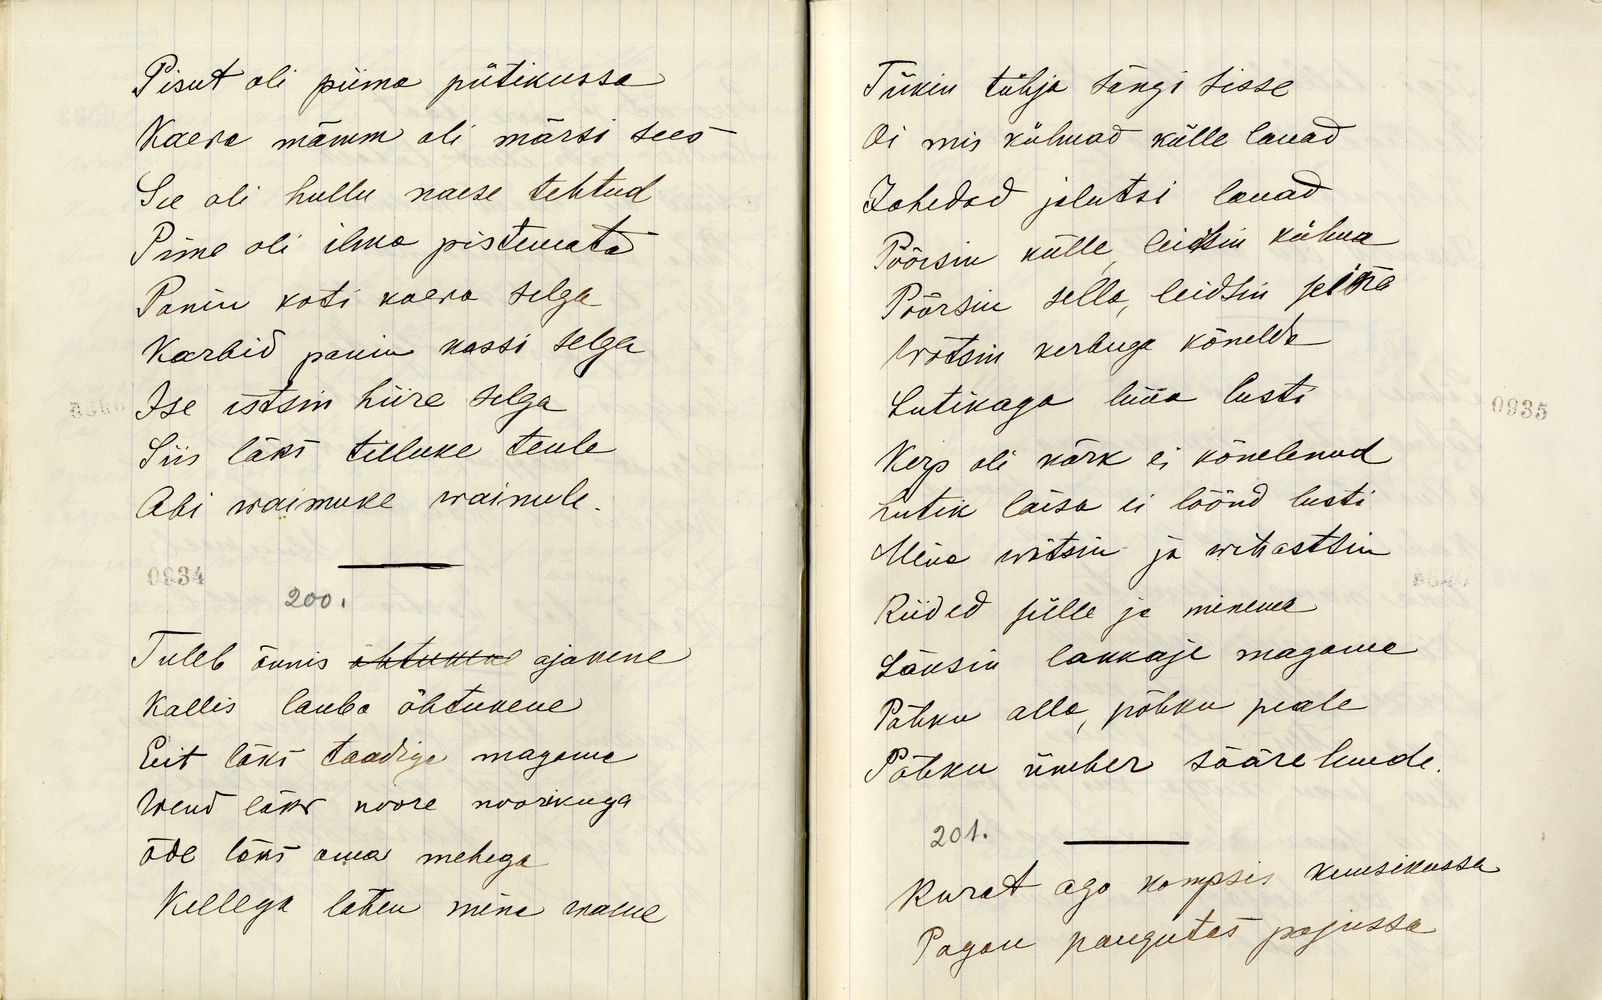 Pisut oli piima pütikussa
Kaera mämm oli märsi sees
See oli hullu naese tehtud
Piima oli ilma pistmata
Panin koti kaera selga
Karbid panin kassi selga
Ise istsin hiire selga
Siis läks tilluke teule
Abi waimuke wainule.
0934
200.
Tuleb õnnis õhtukene ajakene
Kallis lauba õhtukene
Eit läks taadiga magama
Wend läks noore noorikuga
Õde läks oma mehega
Kellega lähen mina waene
Tükin tühja sängi sisse
Oi mis külmad külle lauad
Jahedad jalutsi lauad
Pöörsin külle, leidsin külma
Pöörsin sella, leidsin seina
Wõtsin kerbuga kõnelda
0935
Lutikaga lüüa lusti
Kerp oli kärk ei kõnelenud
Lutik laisa ei löönd lusti
Mina wõtsin ja wihastsin
Riided sülle ja minema
Läksin lakkaje magama
Põhku alla, põhku peale
Põhku ümber sääre luude.
201.
Kurat aga kompsis kuusikussa
Pagan paugutas pajussa